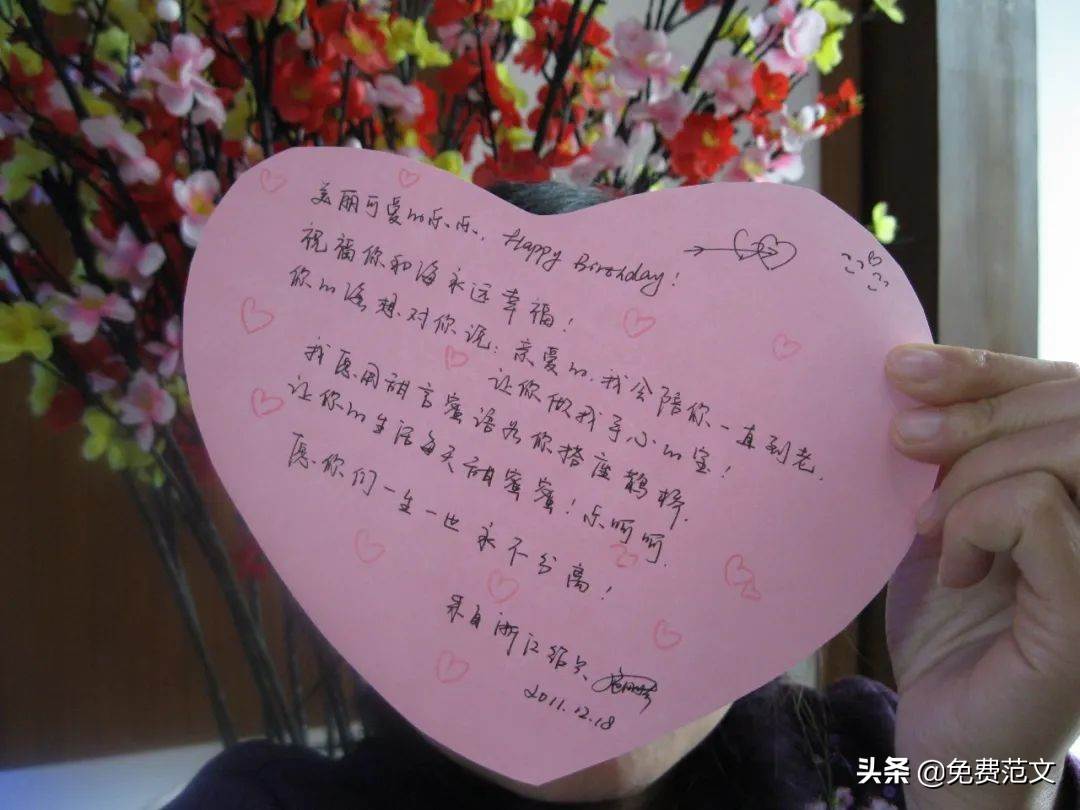 美丽可爱的乐乐，Happy Birthday！
祝福你和海永远幸福！
你的海想对你说：亲爱的，我会陪你一直到老，
让你做我手心的宝！
我愿用甜言蜜语为你搭座鹊桥，
让你的生活每天甜蜜蜜！乐呵呵，
愿你们一生一世永不分离！
来自浙江绍兴
2011.12.18
头条 @免费范文